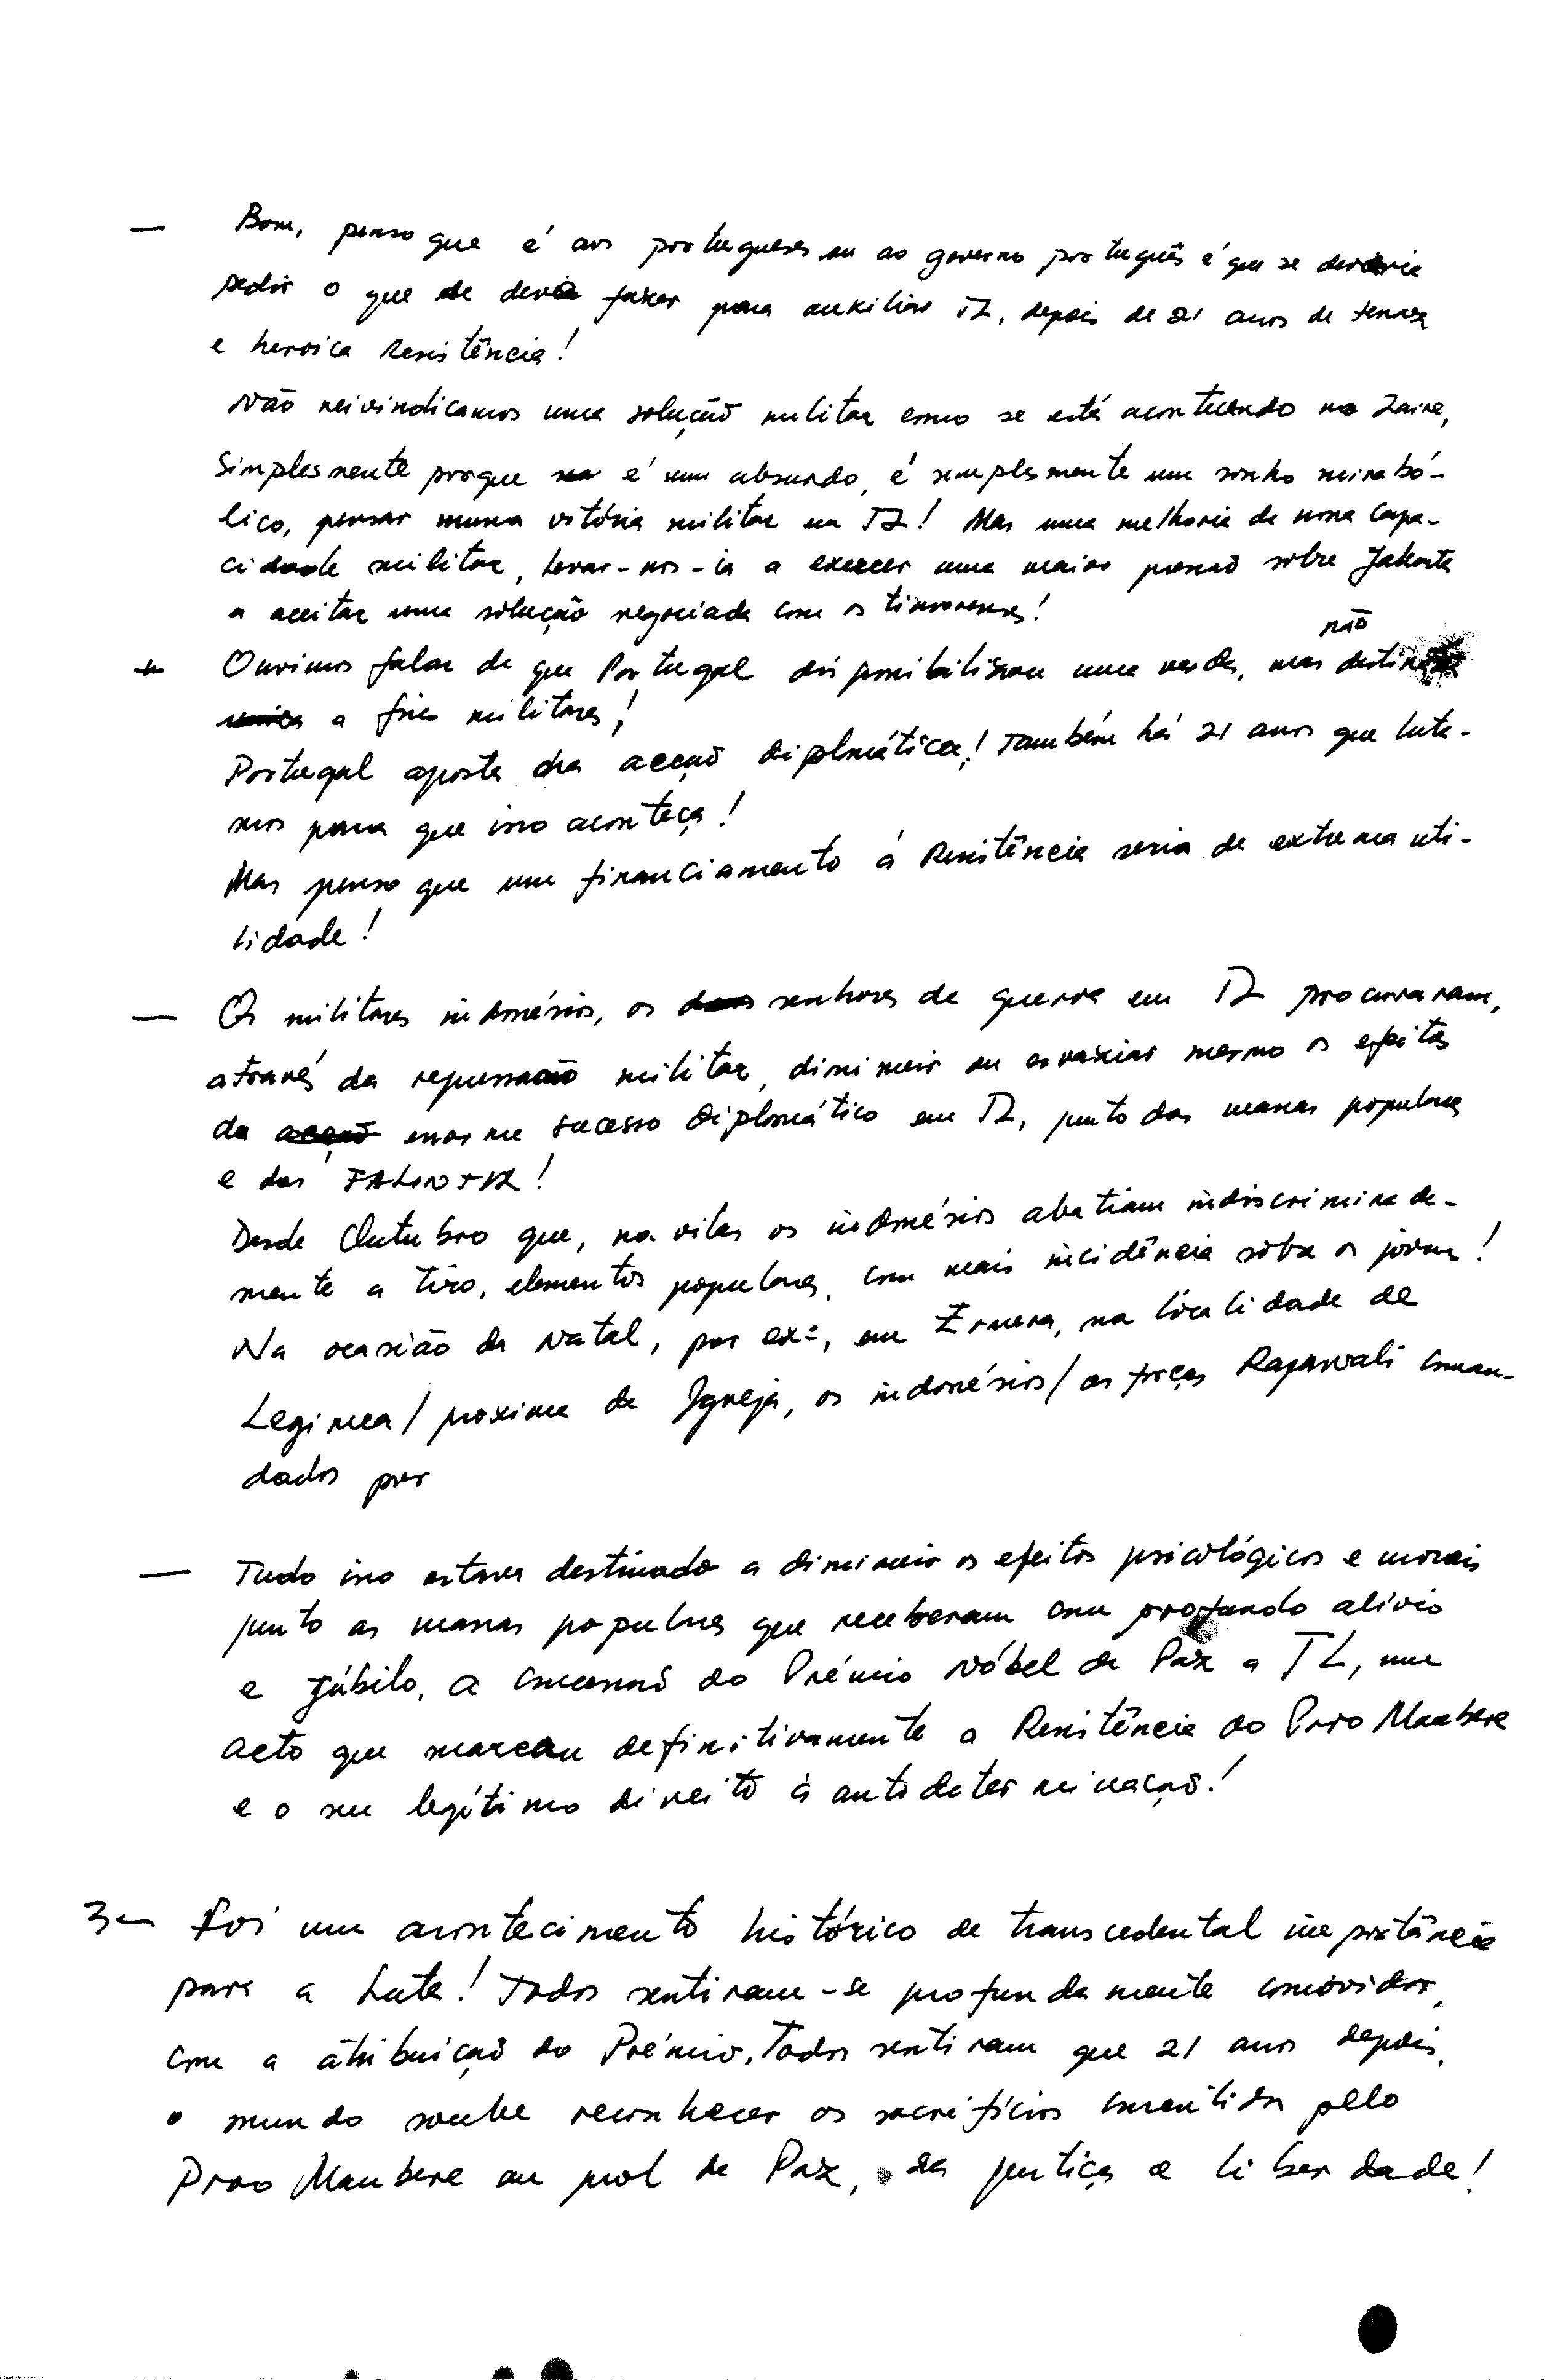 — Bom, penso que é aos portugueses ou ao governo português é que se deveria
pedir o que se devia fazer para auxiliar TL, depois de 21 anos de tenaz
e heroica Resistência!
Não reivindicamos uma solução militar como se está acontecendo no Zaire,
Simplesmente porque é um absurdo, é simplesmente um sonho mirabó-
lico, pensar numa vitória militar em TL! Mas uma melhoria de nossa capa-
cidade militar, levar-nos-ia a exercer uma maior pressão sobre Jakarta
a aceitar uma solução negociada com os timorenses!
* Ouvimos falar de que Portugal disponibilizou uma verba, mas não destinada
a fins militares!
Portugal aposta na acção diplomática! Também há 21 anos que luta-
mos para que isso aconteça!
Mas penso que um financiamento á Resistência seria de extrema uti-
lidade!
— Os militares indonésios, os senhores de guerra em TL procuraram,
através da repressão militar, diminuir ou esvaziar mesmo os efeitos
do enorme sucesso diplomático em TL, junto das massas populares
e das FALINTIL!
Desde Outubro que, na vilas os indonésios abatiam indiscriminada-
mente a tiro, elementos populares, com mais incidência sobre os jovens!
Na ocasião do Natal, por exº, em Ermera, na localidade de
Leginca / proximo da Igreja, os indonésios / as forças Rajawali coman-
dados por
— Tudo isso estava destinado a diminuir os efeitos psicológicos e morais
junto as massas populares que receberam com profundo alívio
e júbilo, a concessão do Prémio Nóbel da Paz a TL, num
acto que marcou definitivamente a Resistência do Povo Maubere
e o seu legítimo direito à autodeterminação!
3 — Foi um acontecimento histórico de transcedental importância
para a Luta! Todos sentiram-se profundamente comovidos,
com a atribuição do Prémio. Todos sentiram que 21 anos depois,
o mundo soube reconhecer os sacrifícios consentidos pelo
Povo Maubere em prol da Paz, da justiça e liberdade!